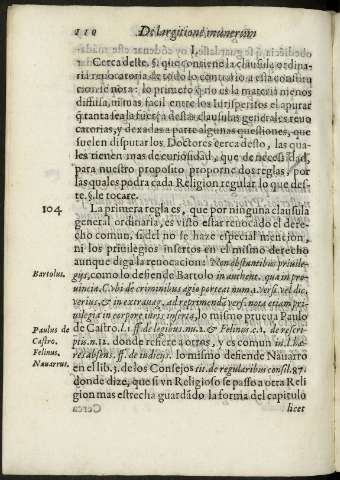 110 De largitione munerum
I.
Cerca deste, §, que contiene la clausula ordina-
ria reuocatoria de todo lo contrario a esta constitu
cion se nota: lo primero q̃ no es la materia menos
difusa, ni mas facil entre los Iurisperitos el apurar
q̃ tanta sea la fuerça destas clausulas generales reuo
catorias, y dexadas a parte algunas questiones, que
suelen disputar los Doctores cerca desto, las qua-
les tienen mas de curiosidad, que de necesidad,
para nuestro proposito proporne dos reglas, por
las quales podra cada Religion regular lo que des-
te. §. le tocare.
104. La primera regla es, que por ninguna clausula
general ordinaria, es visto estar reuocado el dere-
cho comun, si del no se haze especial mention,
ni los priuilegios insertos en el mismo derecho
aunque diga la reuocacion: Non obstantibus priuile-
Bartolus. gijs, como lo defiende Bartolo in authent. qua in pro-
uincia. C. vbi de criminibus agi oporteat num. 2. versi. vel dic,
verius, & in extrauag. ad reprimend. vers. nota etiam pri-
uilegia in corpore iuris inserta, lo mismo prueua Paulo
Paulus de Castro. de Castro. l. 1. ff. de legibus. nu. 2. & Felino c. 1. de rescri-
Felinus. ptis. n. 12. donde refiere a otros, y es comun in l. ha-
Nauarrus. res absens. ff. de iudicijs. lo mismo defiende Nauarro
en el lib. 3. de los Consejos tit. de regularibus consil. 87.
donde dize, que si vn Religioso se passo a otra Reli
gion mas estrecha guardãdo la forma del capitulo
licet